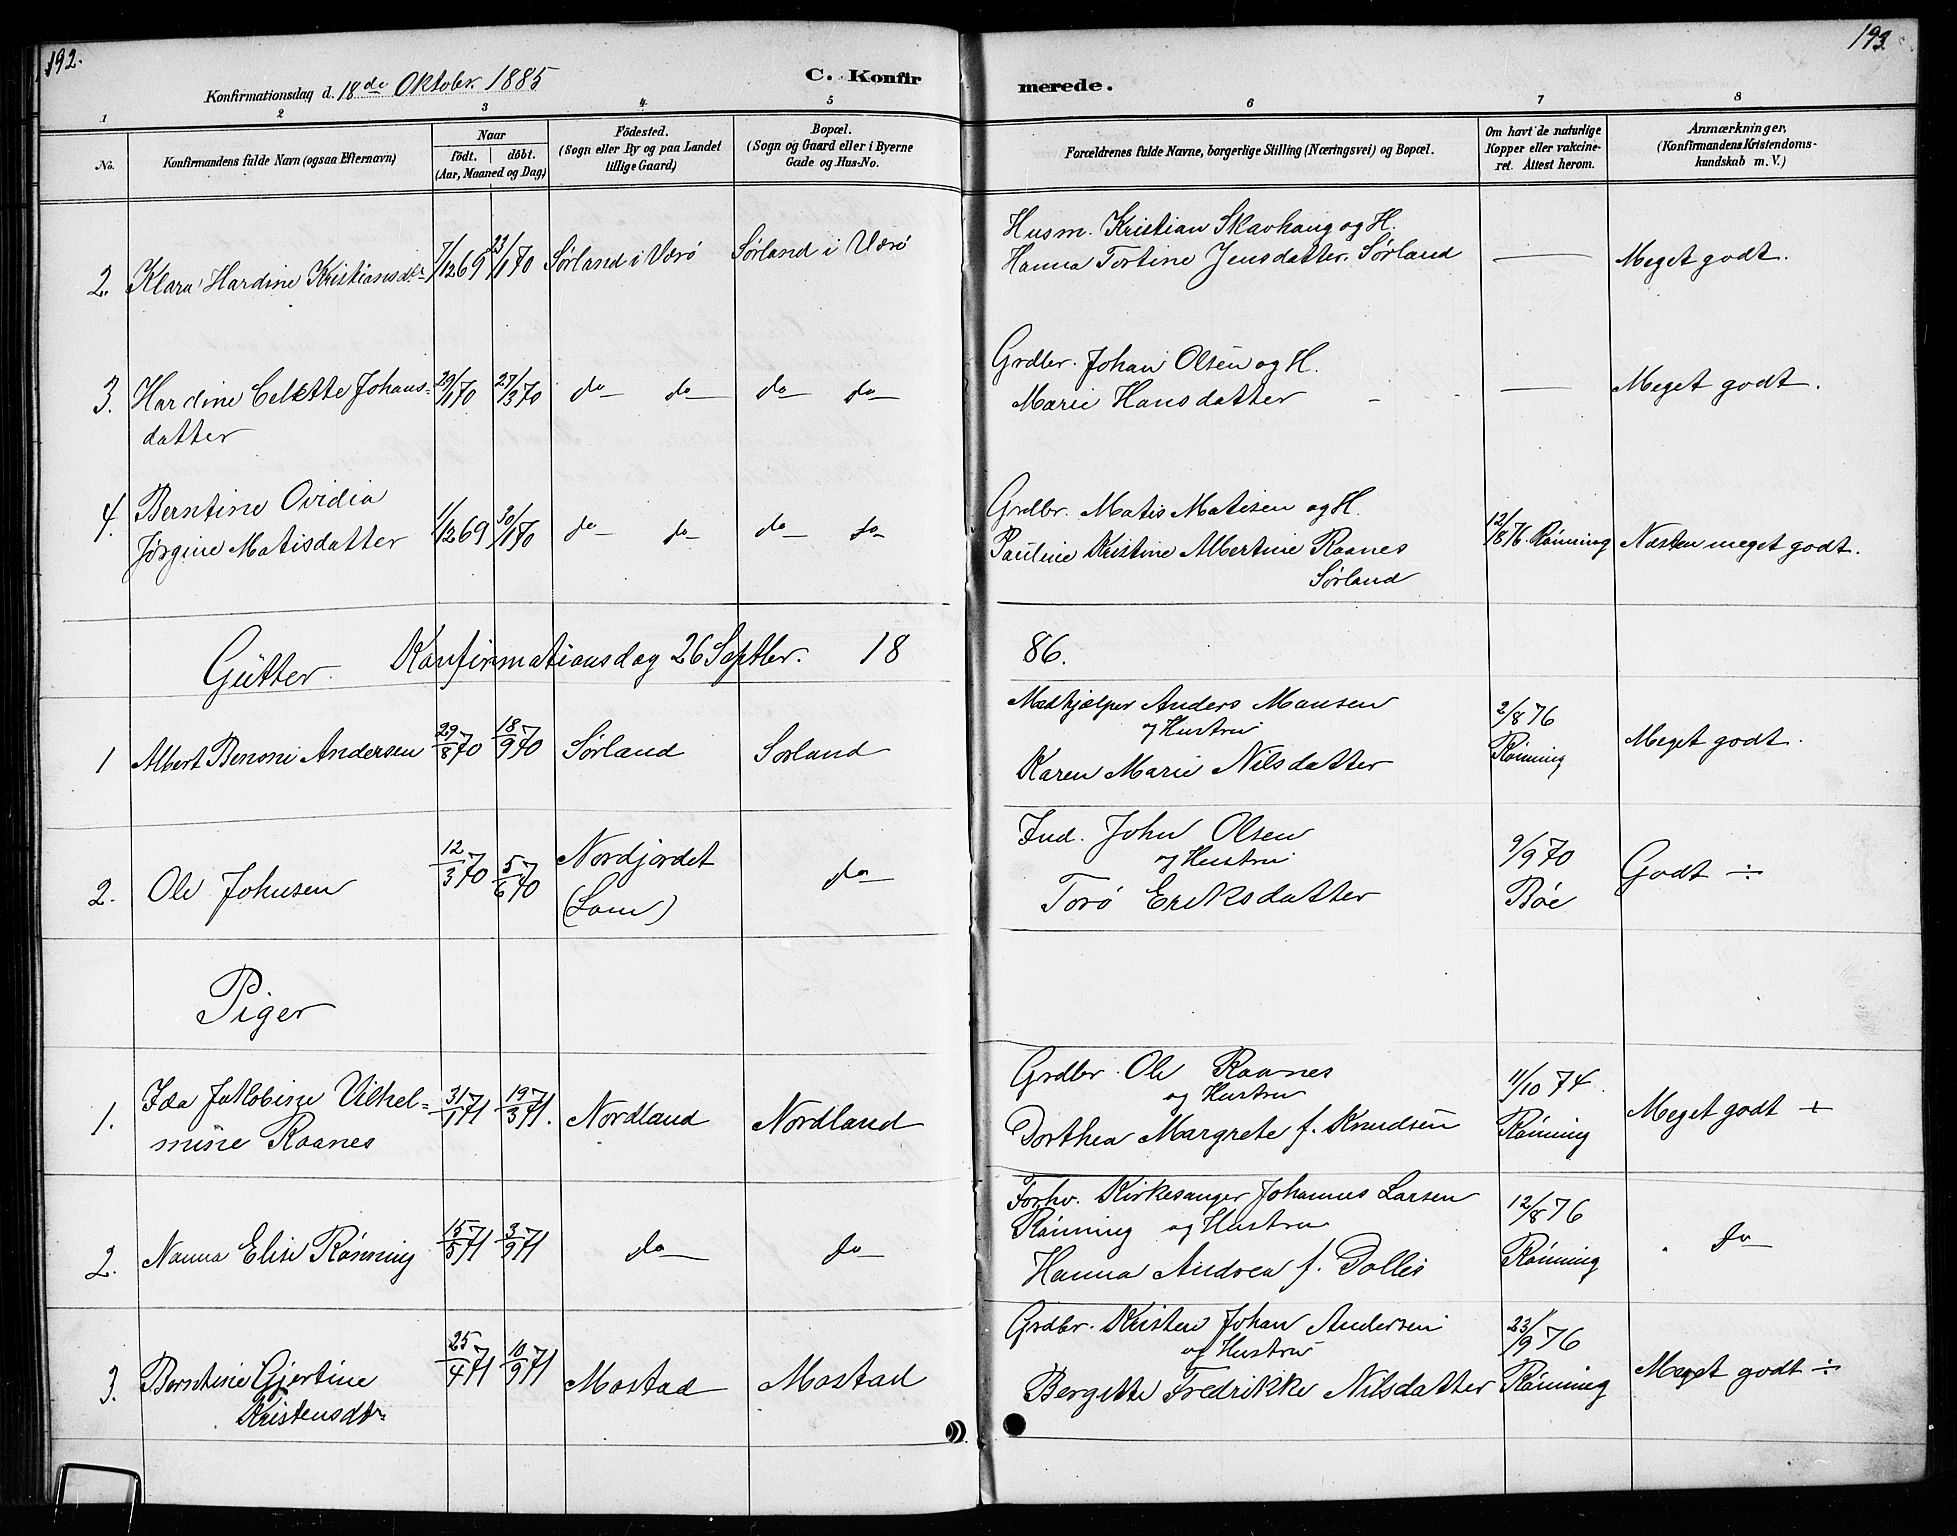 192.
193.
Konfirmationsdag d. 18de Oktobr. 1885
C. Konfir
merede.
1 2 3 4 5 6 7 8
No.
Konfirmandens fulde Navn (ogsaa Efternavn)
Naar
födt. | döbt.
(Aar, Maaned og Dag)
Födested.
(Sogn eller By og paa Landet
tillige Gaard)
Bopæl.
(Sogn og Gaard eller i Byerne
Gade og Hus-No.
Forældrenes fulde Navne, borgerlige Stilling (Næringsvei) og Bopæl.
Om havt de naturlige
Kopper eller vakcine-
ret. Attest herom.
Anmærkninger,
(Konfirmandens Kristendoms-
kundskab m. V.)
2. Klara Hardine Kristiansdtr 7/12 69 23/1 70 Sørland i Værø Sørland i Værø
Husm. Kristian Skavhaug og H.
Hanna Tortine Jensdatter. Sørland — Meget godt.
3. Hardine Celette Johans- 29/1 70 27/3 70 do do do do
datter
Grdbr. Johan Olsen og H.
Marie Hansdatter — Meget godt.
4. Berntine Ovidia
Jørgine Matisdatter 1/12 69 30/1 70 do do do do
Grdbr. Matis Matisen og H.
Pauline Kristine Albertine Raanes 12/8 76. Rønning Næsten meget godt.
Sørland
Gutter. Konfirmationsdag 26 Septbr. 18 86.
1 Albert Benoni Andersen 29/8 70 18/9 70 Sørland Sørland
Medhjælper Anders Mansen
og Hustru
Karen Marie Nilsdatter
2/8 76
Rønning
Meget godt.
2. Ole Johnsen 12/3 70 5/6 70 Nordjordet
(Lom)
do
Ind. John Olsen
og Hustru
Torø Eriksdatter
9/9 70
Bøe
Godt ÷
Piger
1. Ida Jakobine Vilhel= 31/1 71 19/3 71. Nordland Nordland
mine Raanes
Grdbr. Ole Raanes
og Hustru
Dorthea Margrete f. Knudsen
11/10 74.
Rønning
Meget godt ÷
2. Nanna Elise Rønning 15/5 71 3/9 71 do do
Forhv. Kirkesanger Johannes Larsen
Rønning og Hustru
Hanna Andrea f. Dolles
12/8 76
Rønning
do
3. Berntine Gjertine
Kristensdtr 25/4 71 10/9 71 Mostad Mostad
Grdbr. Kristen Johan Andersen
og Hustru
Bergitte Fredrikke Nilsdatter
23/9 76
Rønning
Meget godt ÷